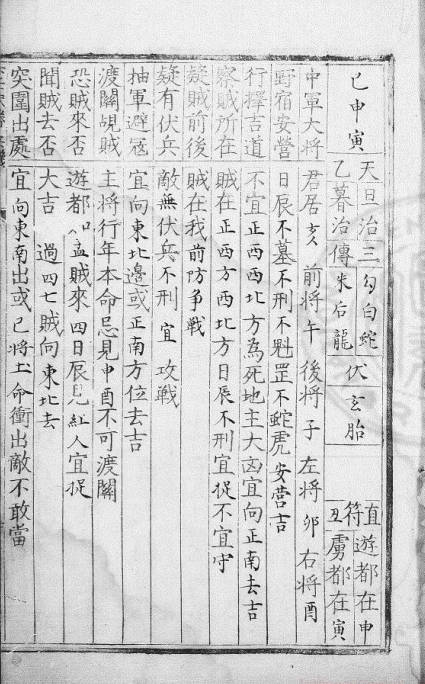 己申寅
天旦治三勾白蛇
乙暮治傳朱后龍
伏玄胎
直符丑
遊都在申
虜都在寅
中軍大將 君居亥 前將午 後將子 左將卯 右將酉
野宿安營 日辰不墓不刑不魁罡不蛇虎安營吉
行擇吉道 不宜正西西北方為死地主大凶宜向正南去吉
察賊所在 賊在正西方西北方日辰不刑宜捉不宜守
疑賊前後 賊在我前防爭戰
疑有伏兵 敵無伏兵不刑宜攻戰
抽軍避寇 宜向東北邊或正南方位去吉
渡關覘賊 主將行年本命忌見申酉不可渡關
恐賊來否 遊都加孟賊來四日辰見紅人宜捉
聞賊去否 大吉過四七賊向東北去
突圍出處 宜向東南出或己將土命衝出敵不敢當